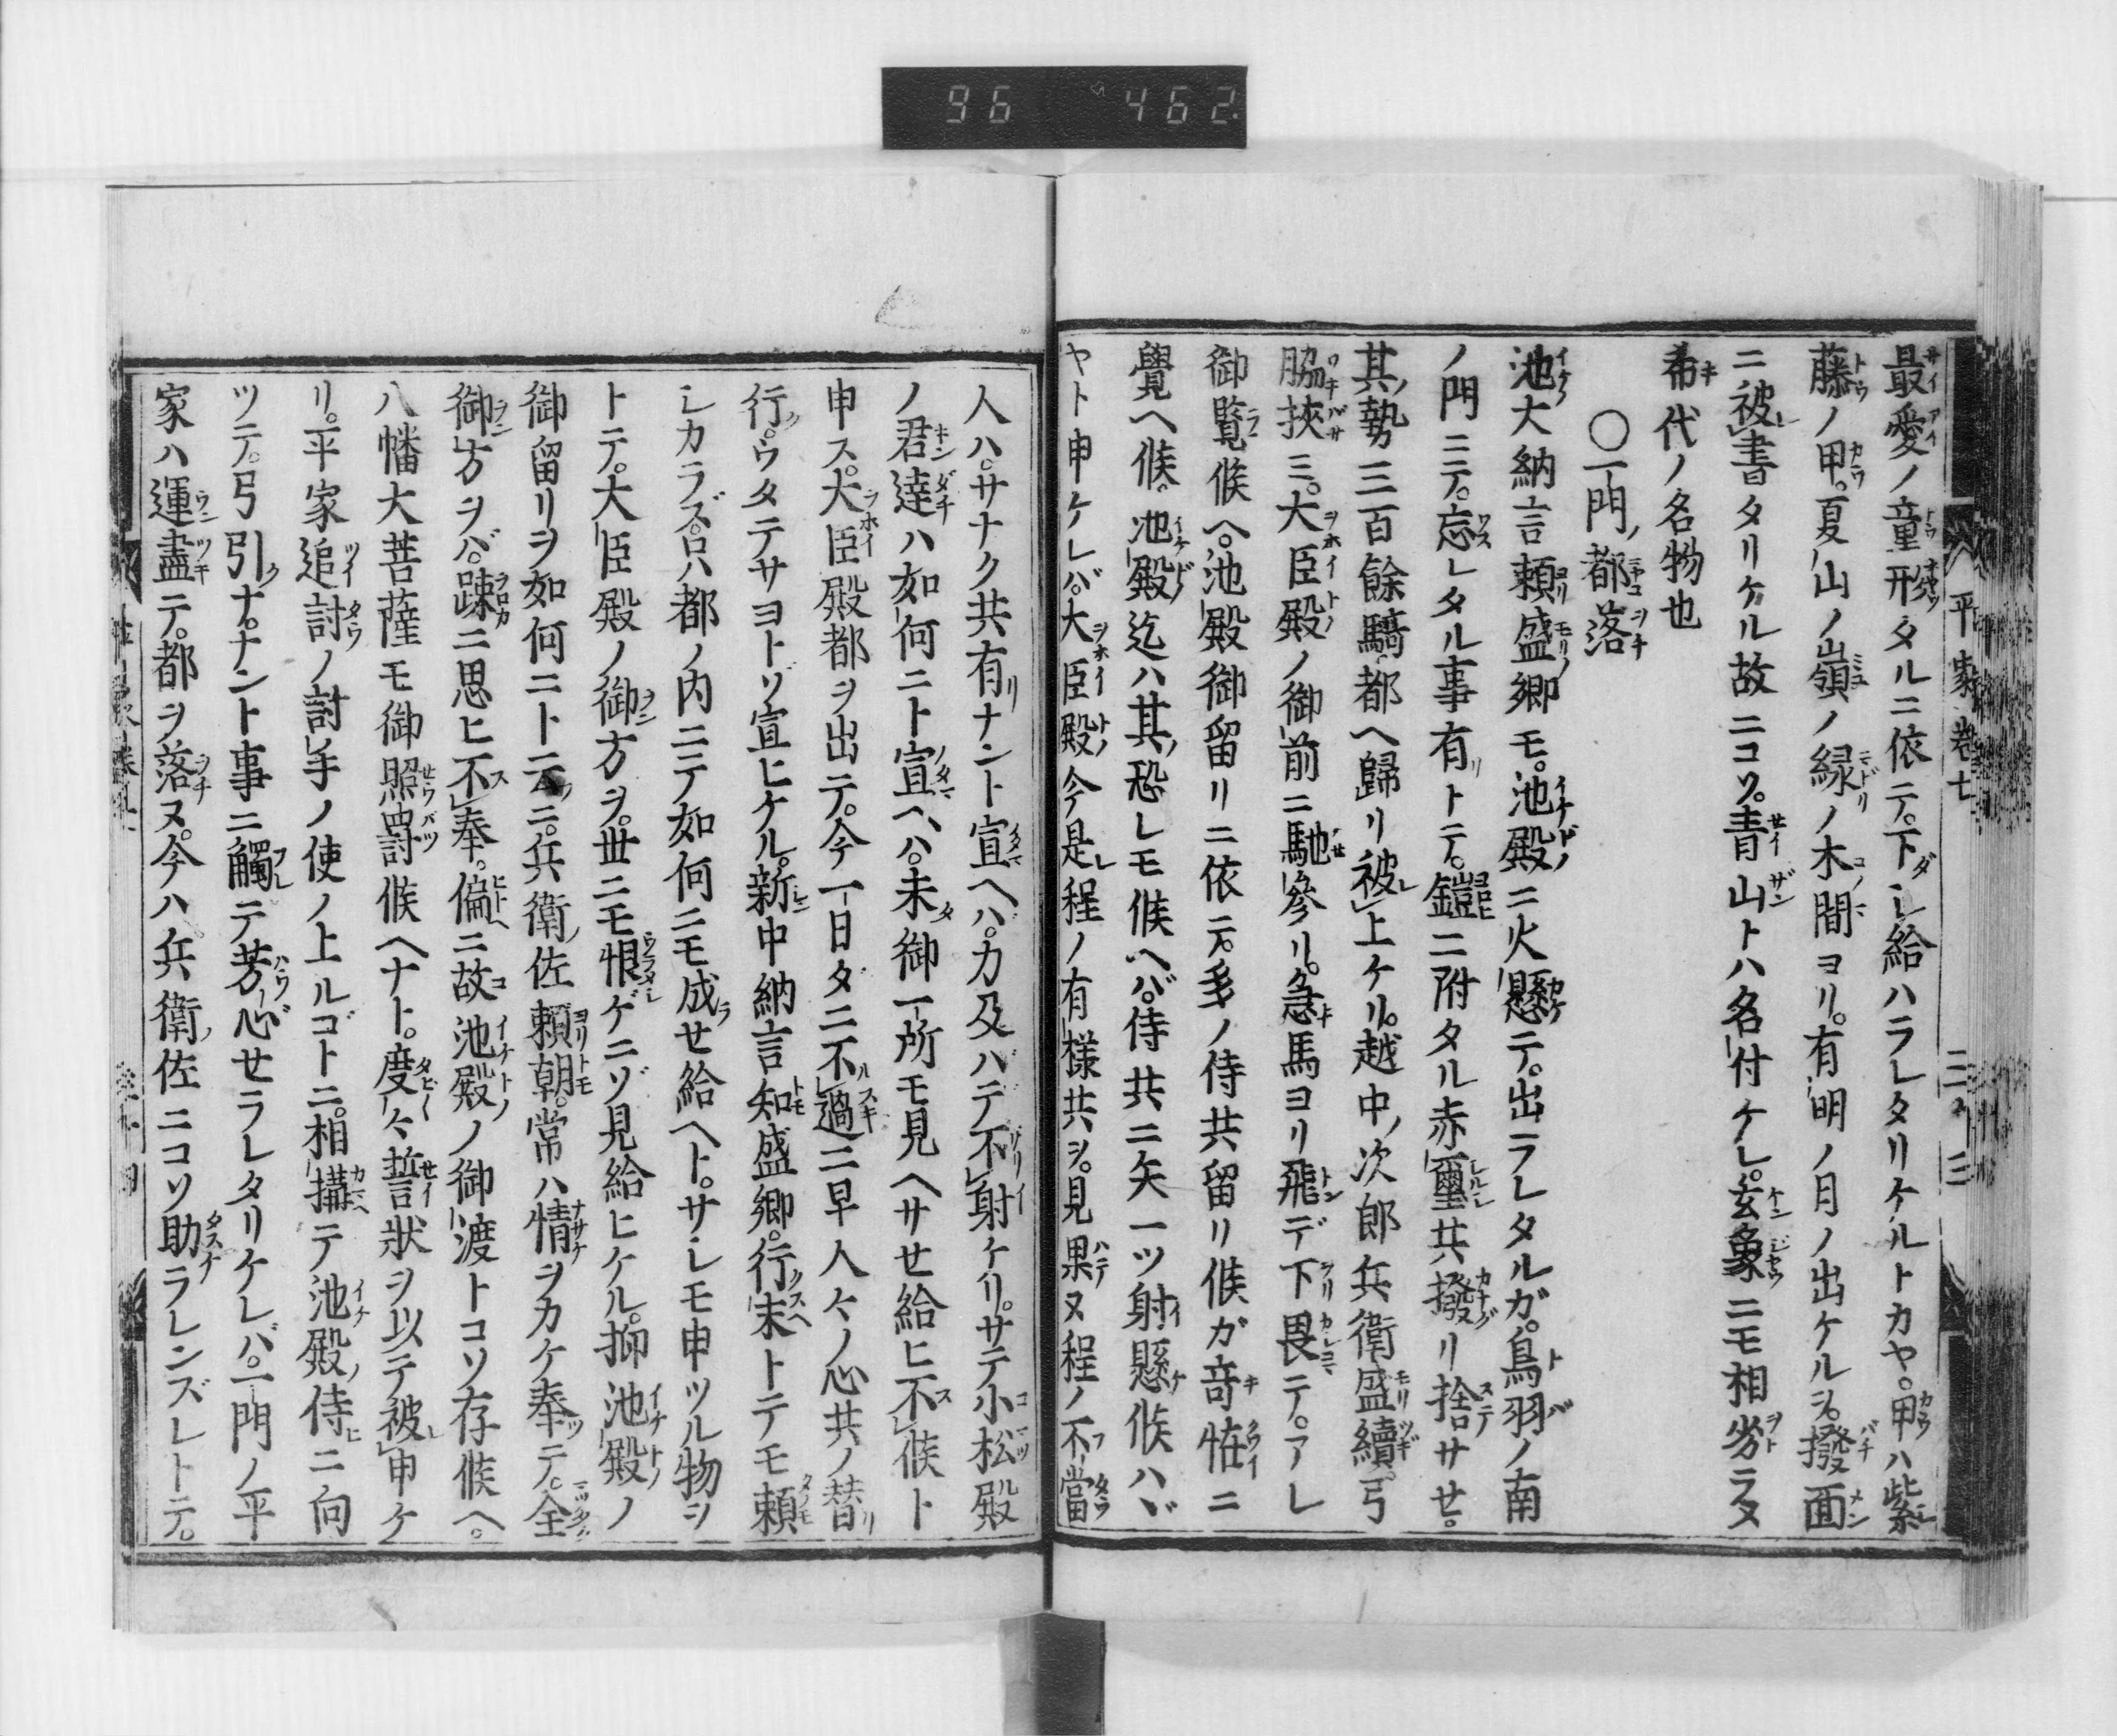 96 462
平家巻七
三十三
最愛ノ童形タルニ依テ。下シ給ハラレタリケルトカヤ。甲ハ紫
藤ノ甲。夏山ノ嶺ノ緑ノ木間ヨリ。有明ノ月ノ出ケルヲ。撥面
ニ被書タリケル故ニコソ。青山トハ名付ケレ。玄象ニモ相劣ラヌ
希代ノ名物也
〇一門ノ都落
池大納言頼盛ノ卿モ。池殿ニ火懸テ。出ラレタルガ。鳥羽ノ南
ノ門ニテ。忘レタル事有リトテ。鎧ニ附タル赤璽共撥リ捨サセ。
其ノ勢三百餘騎都ヘ歸リ被上ケリ。越中ノ次郎兵衛盛續。弓
脇挾ミ。大臣殿ノ御前ニ馳參リ。急キ馬ヨリ飛デ下畏テ。アレ
御覧候ヘ。池殿御留リニ依テ。多ノ侍共留リ候ガ奇怪ニ
覺ヘ候。池殿迄ハ其ノ恐レモ候ヘバ。侍共ニ矢一ツ射懸候ハヾ
ヤト申ケレバ。大臣殿今是程ノ有様共ヲ。見果ヌ程ノ不當
人ハ。サナク共有リナント宣ヘハ。力及バデ不射ケリ。サテ小松殿
ノ君達ハ如何ニト宣ヘハ。未御一所モ見ヘサセ給ヒ不候ト
申ス。大臣殿都ヲ出テ。今一日ダニ不過ニ早人々ノ心共ノ替リ
行。ウタテサヨトゾ宣ヒケル。新中納言知盛卿。行末トテモ頼
シカラズ。只都ノ内ニテ如何ニモ成セ給ヘト。サシモ申ツル物ヲ
トテ。大臣殿ノ御方ヲ。世ニモ恨ゲニゾ見給ヒケル。抑池殿ノ
御留リヲ如何ニト云ニ。兵衛佐頼朝。常ハ情ヲカケ奉テ。全
御方ヲバ。踈ニ思ヒ不奉。偏ニ故池殿ノ御渡トコソ存候ヘ。
八幡大菩薩モ御照罸候ヘナト。度々誓狀ヲ以テ被申ケ
リ。平家追討ノ討手ノ使ノ上ルゴトニ。相搆テ池殿ノ侍ニ向
ツテ。弓引ナ。ナント事ニ觸テ芳心せラレタリケレバ。一門ノ平
家ハ運盡テ。都ヲ落ヌ。今ハ兵衛ノ佐ニコソ助ラレンズレトテ。